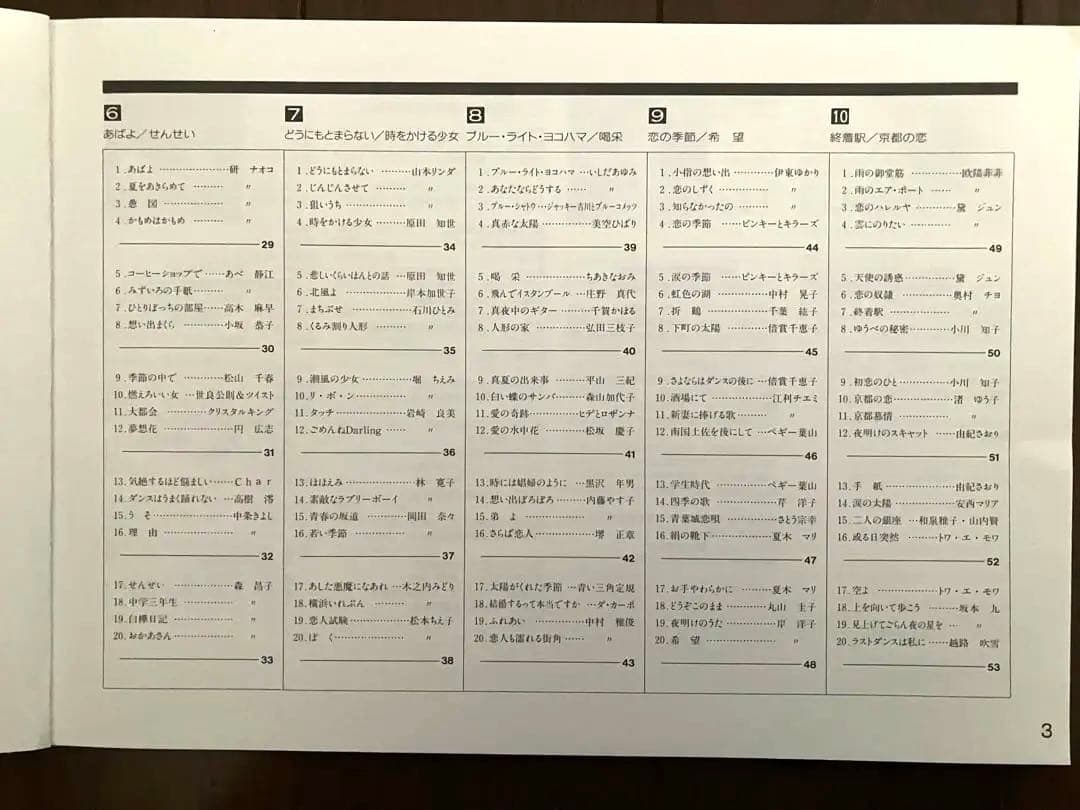 6
あばよ／せんせい
1.あばよ………………研 ナオコ
2.夏をあきらめて ………〃
3.愚 図………………〃
4.かもめはかもめ ………〃
29
5.コーヒーショップで……あべ 静江
6.みずいろの手紙…………〃
7.ひとりぼっちの部屋……高木 麻早
8.想い出まくら …………小坂 恭子
30
9.季節の中で …………松山 千春
10.燃えろいい女 …世良公則&ツイスト
11.大都会 …………クリスタルキング
12.夢想花 …………円 広志
31
13.気絶するほど悩ましい……Char
14.ダンスはうまく踊れない …高樹 澪
15.う そ………………中条きよし
16.理 由………………〃
32
17.せんせい ……………森 昌子
18.中学三年生 ……………〃
19.白樺日記………………〃
20.おかあさん ……………〃
33
7
どうにもとまらない／時をかける少女
1.どうにもとまらない ………山本リンダ
2.じんじんさせて …………〃
3.狙いうち………………〃
4.時をかける少女 ………原田 知世
34
5.悲しいくらいほんとの話 …原田 知世
6.北風よ …………岸本加世子
7.まちぶせ …………石川ひとみ
8.くるみ割り人形 …………〃
35
9.潮風の少女 …………堀 ちえみ
10.リ・ボ・ン …………〃
11.タッチ …………岩崎 良美
12.ごめんねDarling ……〃
36
13.ほほえみ …………林 寛子
14.素敵なラブリーボーイ ……〃
15.青春の坂道 …………岡田 奈々
16.若い季節 …………〃
37
17.あした悪魔になあれ …木之内みどり
18.横浜いれぶん …………〃
19.恋人試験…………松本ちえ子
20.ぼ く………………〃
38
8
ブルー・ライト・ヨコハマ／喝采
1.ブルー・ライト・ヨコハマ …いしだあゆみ
2.あなたならどうする ……〃
3.ブルー・シャトウ …ジャッキー吉川とブルーコメッツ
4.真赤な太陽 …………美空ひばり
39
5.喝 采 …………ちあきなおみ
6.飛んでイスタンブール …庄野 真代
7.真夜中のギター …………千賀かほる
8.人形の家 …………弘田三枝子
40
9.真夏の出来事 …………平山 三紀
10.白い蝶のサンバ…………森山加代子
11.愛の奇跡…………ヒデとロザンナ
12.愛の水中花 …………松坂 慶子
41
13.時には娼婦のように ……黒沢 年男
14.想い出ぼろぼろ …………内藤やす子
15.弟 よ …………〃
16.さらば恋人 …………堺 正章
42
17.太陽がくれた季節 …青い三角定規
18.結婚するって本当ですか …ダ・カーポ
19.ふれあい …………中村 雅俊
20.恋人も濡れる街角 ……〃
43
9
恋の季節／希 望
1.小指の想い出 …………伊東ゆかり
2.恋のしずく …………〃
3.知らなかったの …………〃
4.恋の季節 ……ピンキーとキラーズ
44
5.涙の季節 ……ピンキーとキラーズ
6.虹色の湖 …………中村 晃子
7.折 鶴 …………千葉 紘子
8.下町の太陽 …………倍賞千恵子
45
9.さよならはダンスの後に …倍賞千恵子
10.酒場にて …………江利チエミ
11.新妻に捧げる歌 …………〃
12.南国土佐を後にして …ペギー葉山
46
13.学生時代 …………ペギー葉山
14.四季の歌 …………芹 洋子
15.青葉城恋唄 …………さとう宗幸
16.絹の靴下 …………夏木 マリ
47
17.お手やわらかに …………夏木 マリ
18.どうぞこのまま …………丸山 圭子
19.夜明けのうた …………岸 洋子
20.希 望 …………〃
48
10
終着駅／京都の恋
1.雨の御堂筋 …………欧陽菲菲
2.雨のエア・ポート ……〃
3.恋のハレルヤ …………黛 ジュン
4.雲にのりたい …………〃
49
5.天使の誘惑 …………黛 ジュン
6.恋の奴隷 …………奥村 チヨ
7.終着駅 …………〃
8.ゆうべの秘密 …………小川 知子
50
9.初恋のひと …………小川 知子
10.京都の恋 …………渚 ゆう子
11.京都慕情 …………〃
12.夜明けのスキャット ……由紀さおり
51
13.手 紙 …………由紀さおり
14.涙の太陽 …………安西マリア
15.二人の銀座 …和泉雅子・山内賢
16.或る日突然 ……トワ・エ・モワ
52
17.空よ …………トワ・エ・モワ
18.上を向いて歩こう …………坂本 九
19.見上げてごらん夜の星を …〃
20.ラストダンスは私に……越路 吹雪
53
3